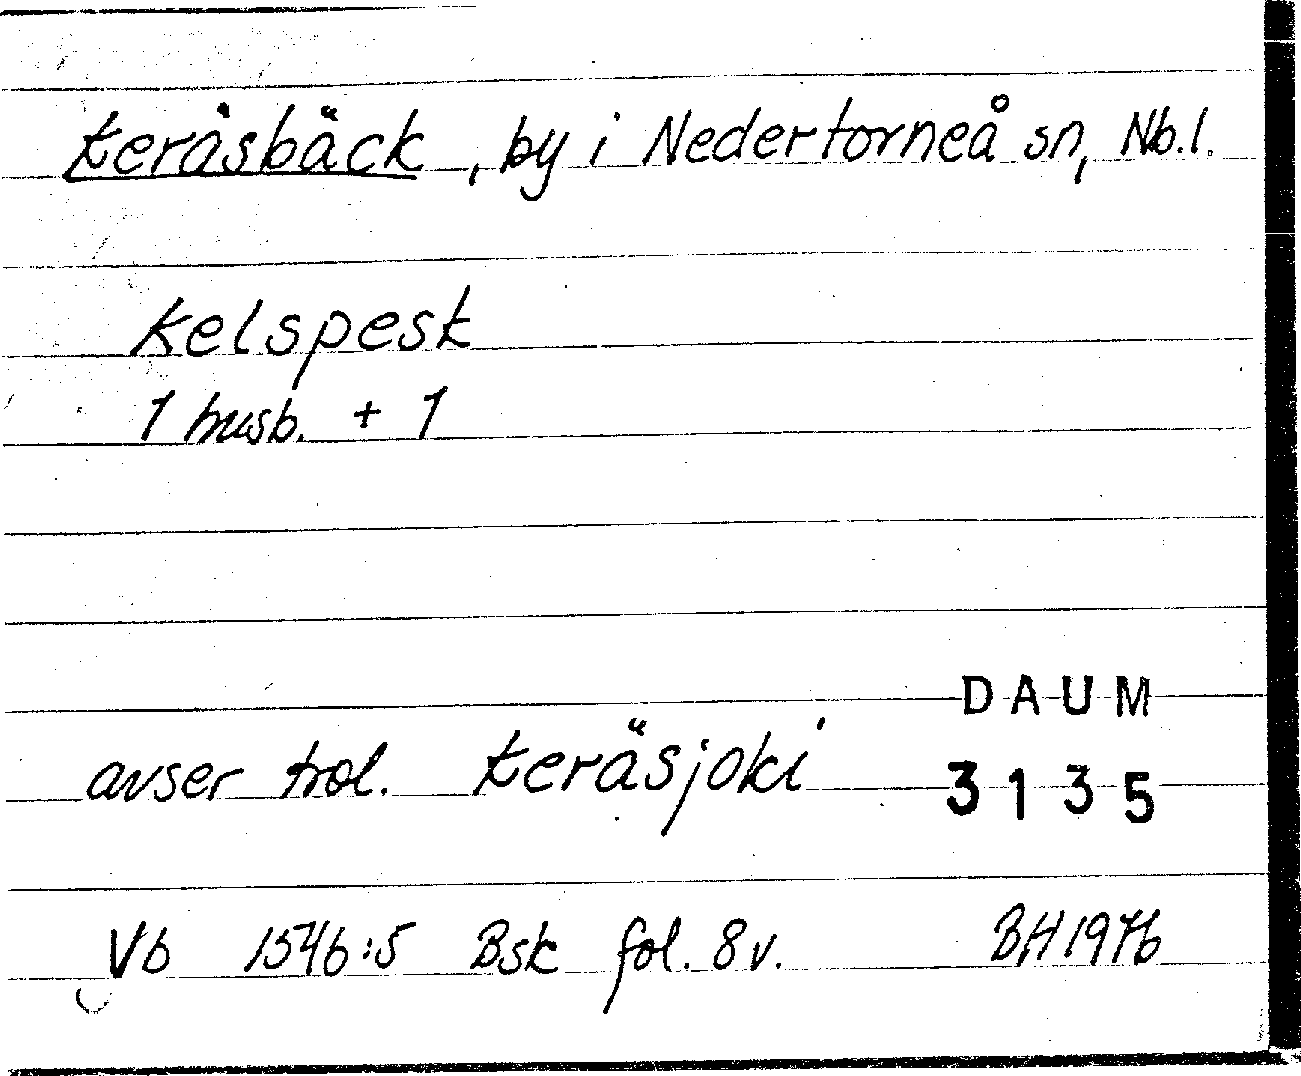 Keräsbäck, by i Nedertorneå sn, Nb.l.
Kelspesk
1 husb. + 1
DAUM
avser trol. Keräsjoki
3135
Vb 1546:5 Bsk fol. 8v. BH 1976